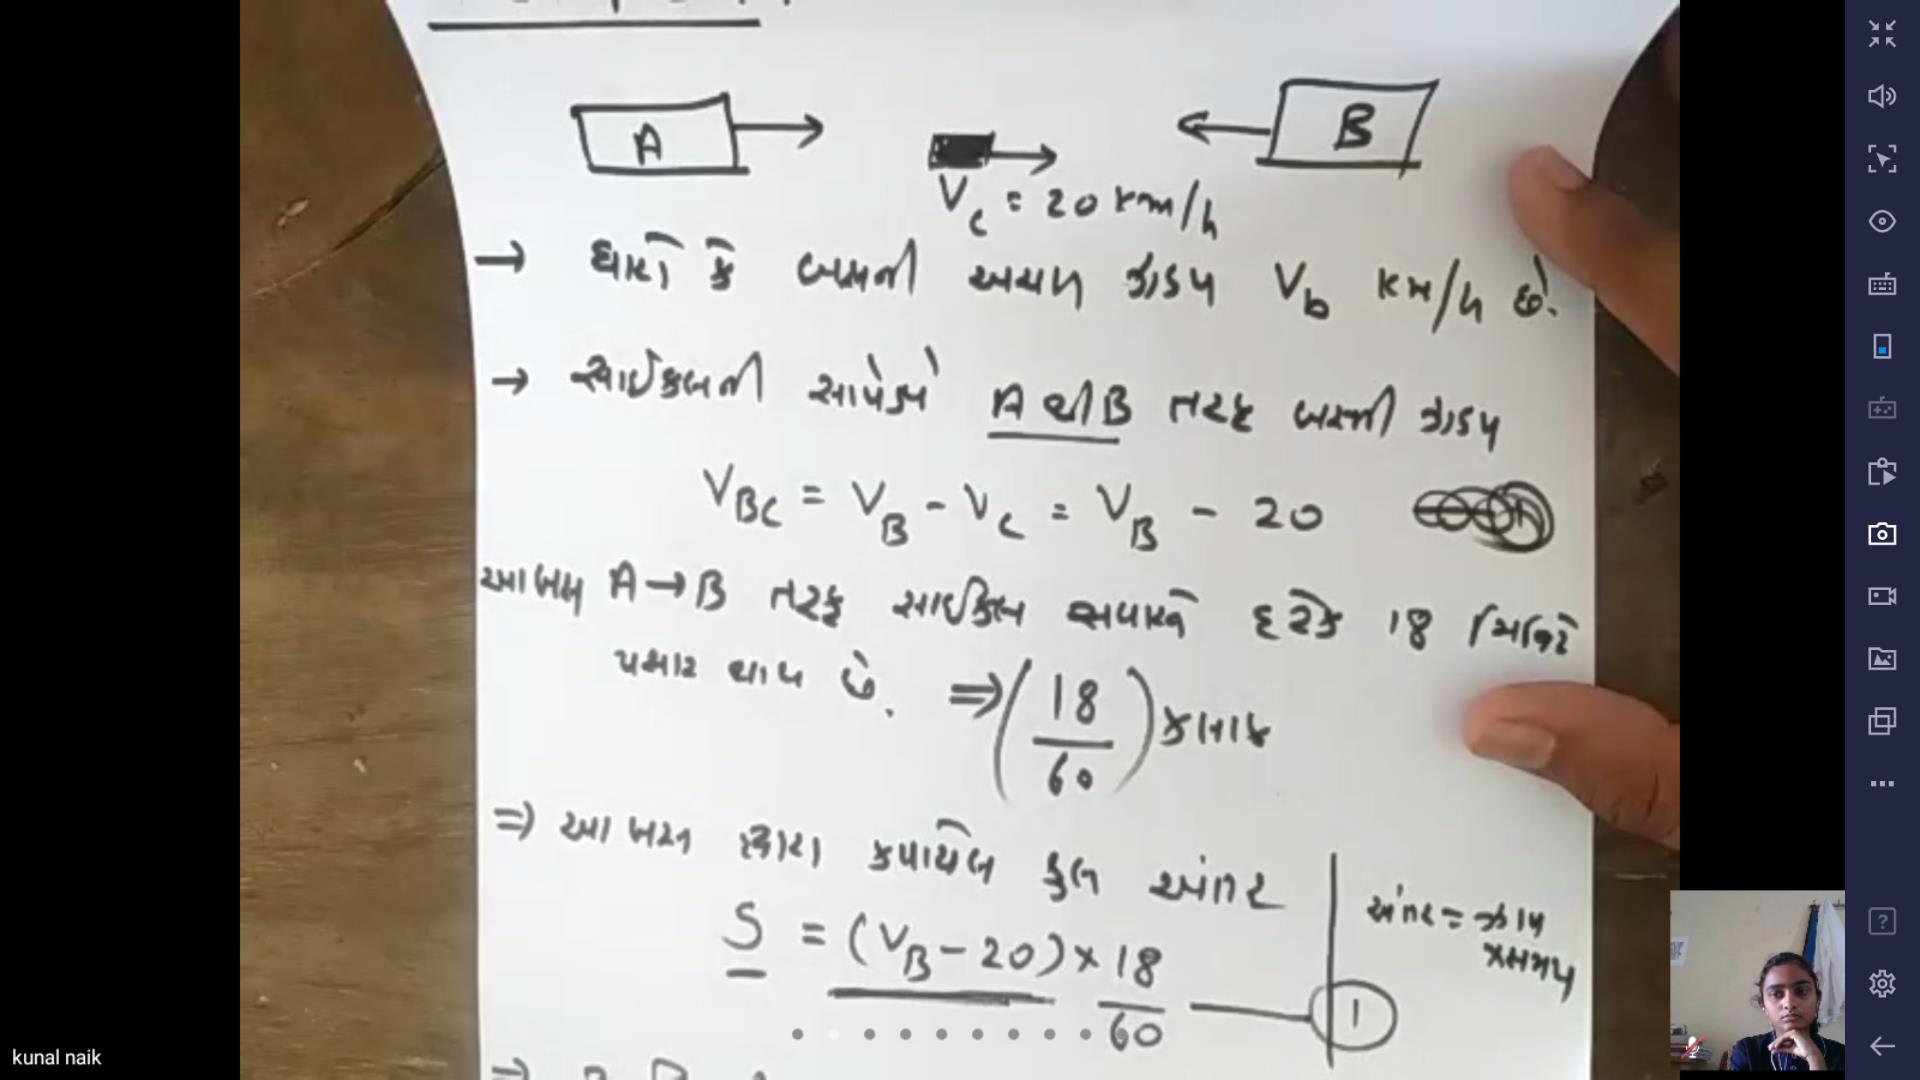 A
B
Vc = 20 km/h
→ ધારો કે બસની અચળ ઝડપ Vb km/h છે.
→ સાઈકલની સાપેક્ષે A થી B તરફ બસની ઝડપ
VBC = VB - Vc = VB - 20
આ બસ A→B તરફ સાઈકલ સવારને દરેક 18 મિનિટે
પસાર થાય છે. ⇒ (18/60) કલાક
⇒ આ બસ દ્વારા કપાયેલ કુલ અંતર
S = (VB - 20) × 18/60 — 1
અંતર = ઝડપ
× સમય
kunal naik